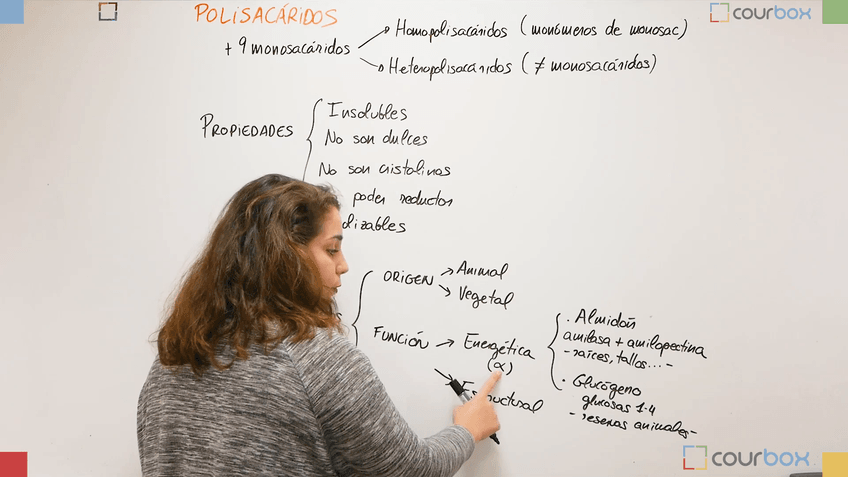 POLISACÁRIDOS
courbox
+ 9 monosacáridos
Homopolisacáridos (monómeros de monosac)
Heteropolisacáridos (≠ monosacáridos)
PROPIEDADES
Insolubles
No son dulces
No son cristalinos
poder reductor
lizables
ORIGEN → Animal
Vegetal
FUNCIÓN → Energética
(α)
Estructural
· Almidón
amilasa + amilopectina
- raíces, tallos... -
· Glucógeno
glucosas 1-4
- reservas animales -
courbox